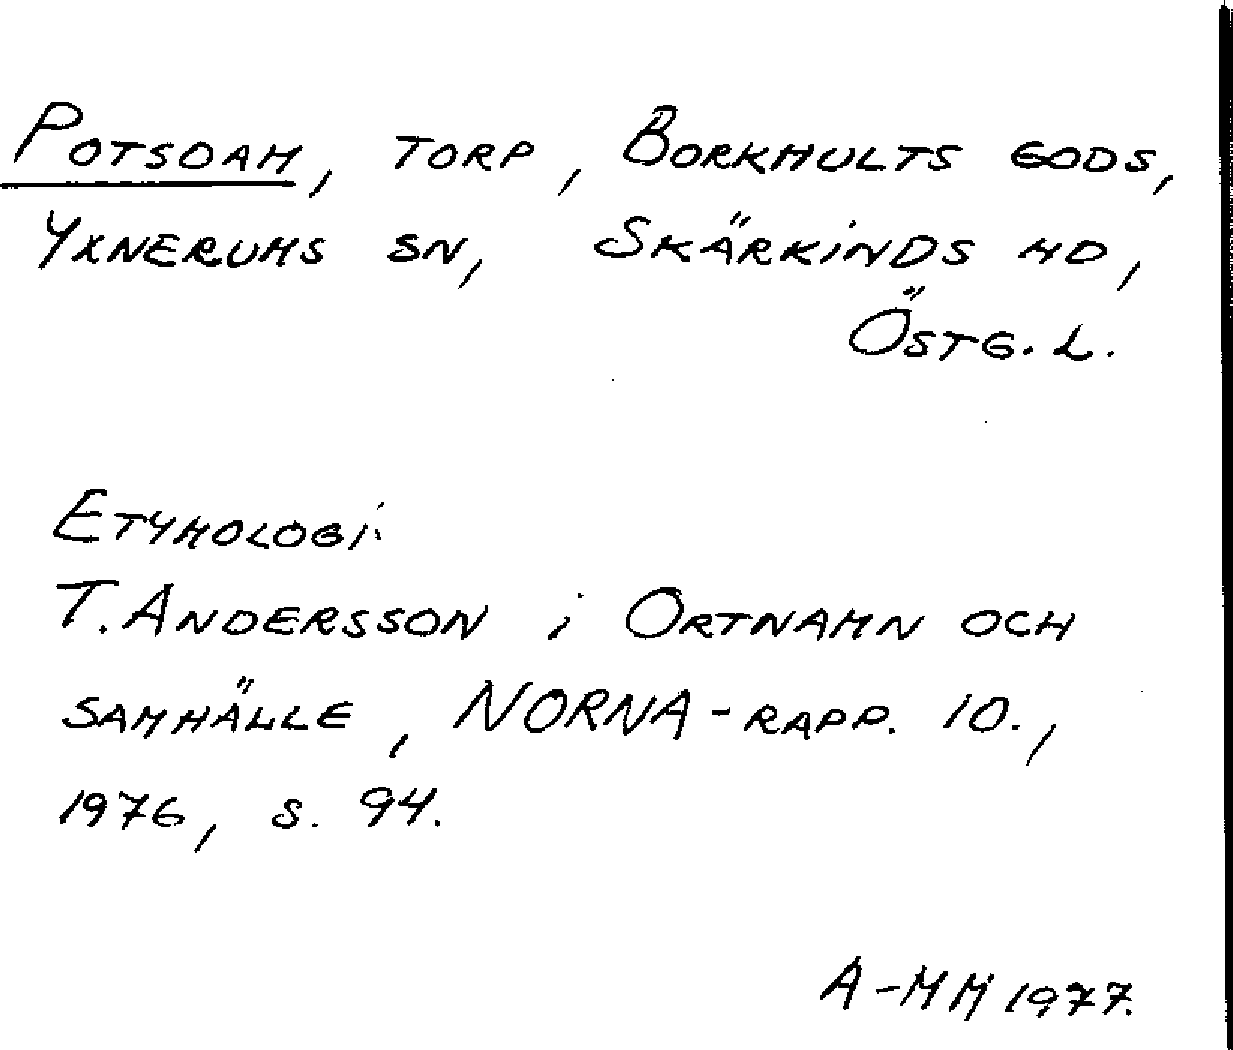 POTSDAM, TORP, BORKHULTS GODS,
YXNERUMS SN, SKÄRKINDS HD,
ÖSTG. L.
ETYMOLOGI:
T. ANDERSSON i ORTNAMN OCH
SAMHÄLLE, NORNA-RAPP. 10.,
1976, S. 94.
A-MM 1977.